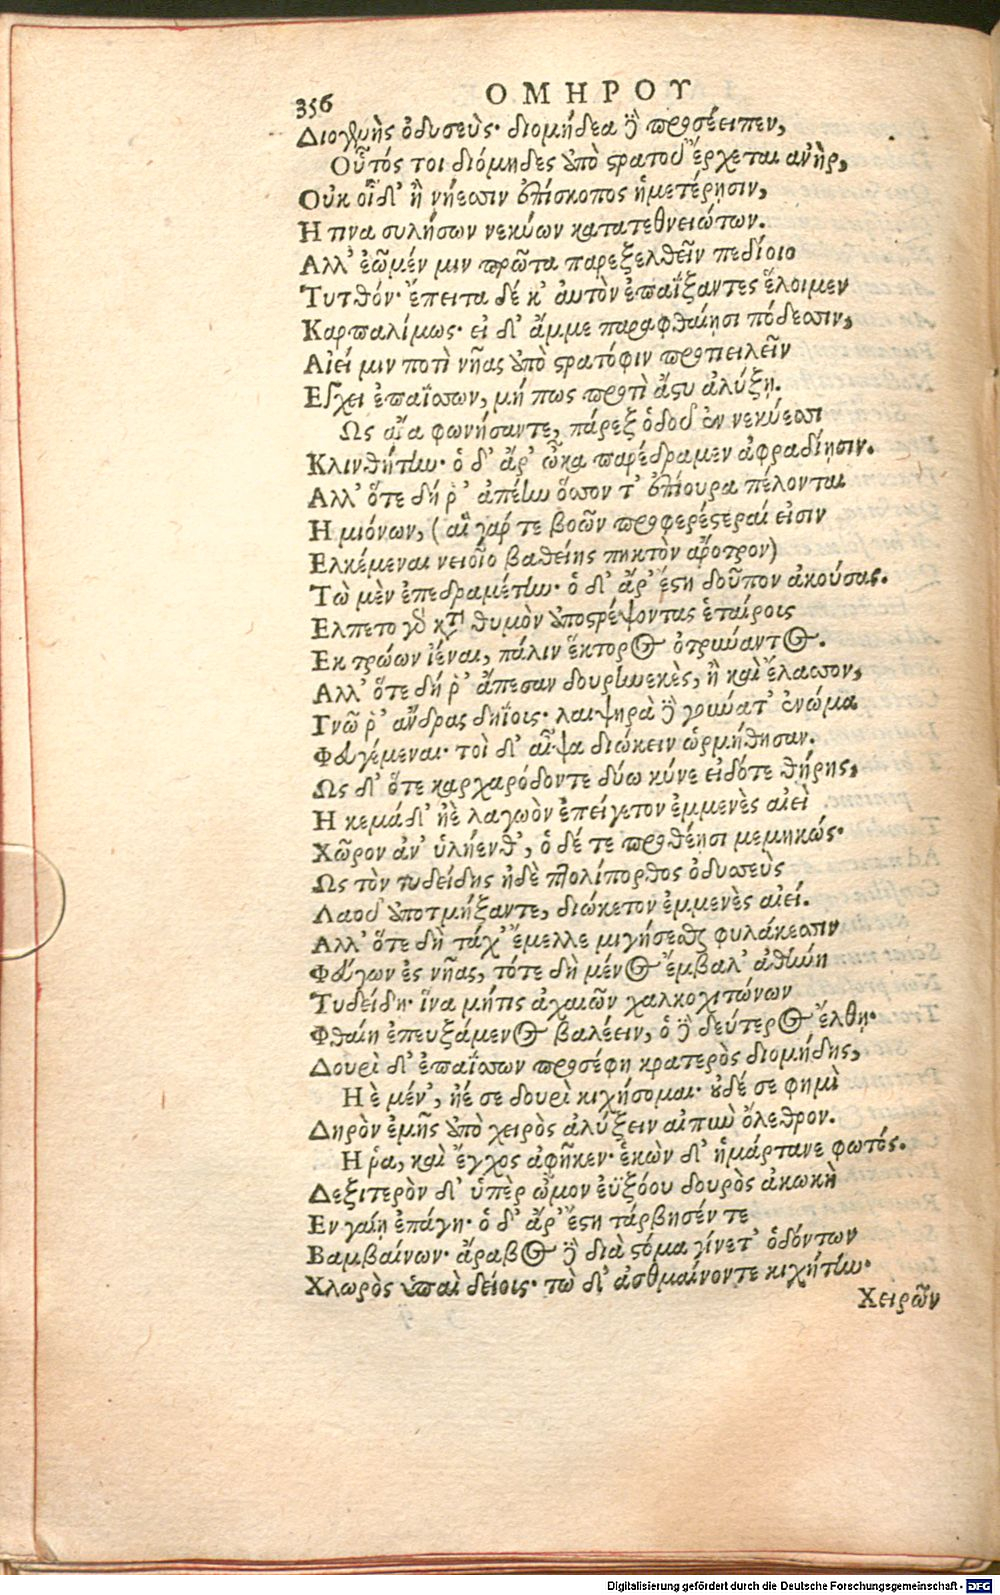 356
ΟΜΗΡΟΥ
Διογλυὴς ὀδυσεὺς· διομήδεα ἢ προσέειπεν,
Οὗτός τοι διόμηδες ὑπὸ στρατοῦ ἔρχεται ανὴρ,
Οὐκ οἶδ' ἢ νήεσσιν ἐπίσκοπος ἡμετέρῃσιν,
Η τινα συλήσων νεκύων κατατεθνειώτων.
Αλλ' ἐῶμέν μιν πρῶτα παρεξελθεῖν πεδίοιο
Τυτθόν· ἔπειτα δέ κ' ἀυτὸν ἐπαΐξαντες ἕλοιμεν
Καρπαλίμως· εἰ δ' ἄμμε παραφθαίῃσι πόδεσσιν,
Αἰεί μιν ποτὶ νῆας ὑπὸ στρατόφιν προτιειλεῖν
Εγχει ἐπαΐσσων, μή πως προτὶ ἄστυ ἀλύξῃ.
Ως ἄρα φωνήσαντε, πάρεξ ὁδοῦ ἐν νεκύεσσι
Κλινθήτην· ὁ δ' ἄρ' ὦκα παρέδραμεν ἀφραδίῃσιν.
Αλλ' ὅτε δή ῥ' ἀπέην ὅσσον τ' ἐπίουρα πέλονται
Η μιόνων, (αἳ γάρ τε βοῶν προφερέστεραί εἰσιν
Ελκέμεναι νειοῖο βαθείης πηκτὸν ἄροτρον)
Τὼ μὲν ἐπεδραμέτην· ὁ δ' ἄρ' ἔστη δοῦπον ἀκούσας.
Ελπετο γὸ κτ θυμὸν ὑποστρέψοντας ἑταίροις
Εκ τρώων ἰέναι, πάλιν ἕκτορος ὀτρύναντος.
Αλλ' ὅτε δή ῥ' ἄπεσαν δουρηνεκὲς, ἢ καὶ ἔλασσον,
Γνῶ ῥ' ἄνδρας δηΐοις· λαιψηρὰ ἢ γούνατ' ἐνώμα
Φευγέμεναι· τοὶ δ' αἶψα διώκειν ὡρμήθησαν.
Ως δ' ὅτε καρχαρόδοντε δύω κύνε εἰδότε θήρης,
Η κεμάδ' ἠὲ λαγωὸν ἐπείγετον ἐμμενὲς αἰεὶ
Χῶρον ἀν' ὑλήενθ', ὁ δέ τε προθέῃσι μεμηκώς·
Ως τὸν τυδείδης ἠδὲ πτολίπορθος ὀδυσσεὺς
Λαοῦ ὑποτμήξαντε, διώκετον ἐμμενὲς αἰεί.
Αλλ' ὅτε δὴ τάχ' ἔμελλε μιγήσεσθαι φυλάκεσσιν
Φεύγων ἐς νῆας, τότε δὴ μένος ἔμβαλ' ἀθήνη
Τυδείδῃ· ἵνα μήτις ἀχαιῶν χαλκοχιτώνων
Φθαίη ἐπευξάμενος βαλέειν, ὁ ἢ δεύτερος ἔλθῃ·
Δουρὶ δ' ἐπαΐσσων προσέφη κρατερὸς διομήδης,
Η ὲ μέν', ἠέ σε δουρὶ κιχήσομαι· οὐδέ σε φημὶ
Δηρὸν ἐμῆς ὑπὸ χειρὸς ἀλύξειν αἰπὺν ὄλεθρον.
Η ῥα, καὶ ἔγχος ἀφῆκεν· ἑκὼν δ' ἡμάρτανε φωτός.
Δεξιτερὸν δ' ὑπὲρ ὦμον ἐϋξόου δουρὸς ἀκωκὴ
Εν γαίῃ ἐπάγη· ὁ δ' ἄρ' ἔστη τάρβησέν τε
Βαμβαίνων· ἄραβος ἢ διὰ στόμα γίνετ' ὀδόντων
Χλωρὸς ὑπαὶ δείοις· τὼ δ' ἀσθμαίνοντε κιχήτην·
Χειρῶν
Digitalisierung gefördert durch die Deutsche Forschungsgemeinschaft - DFG